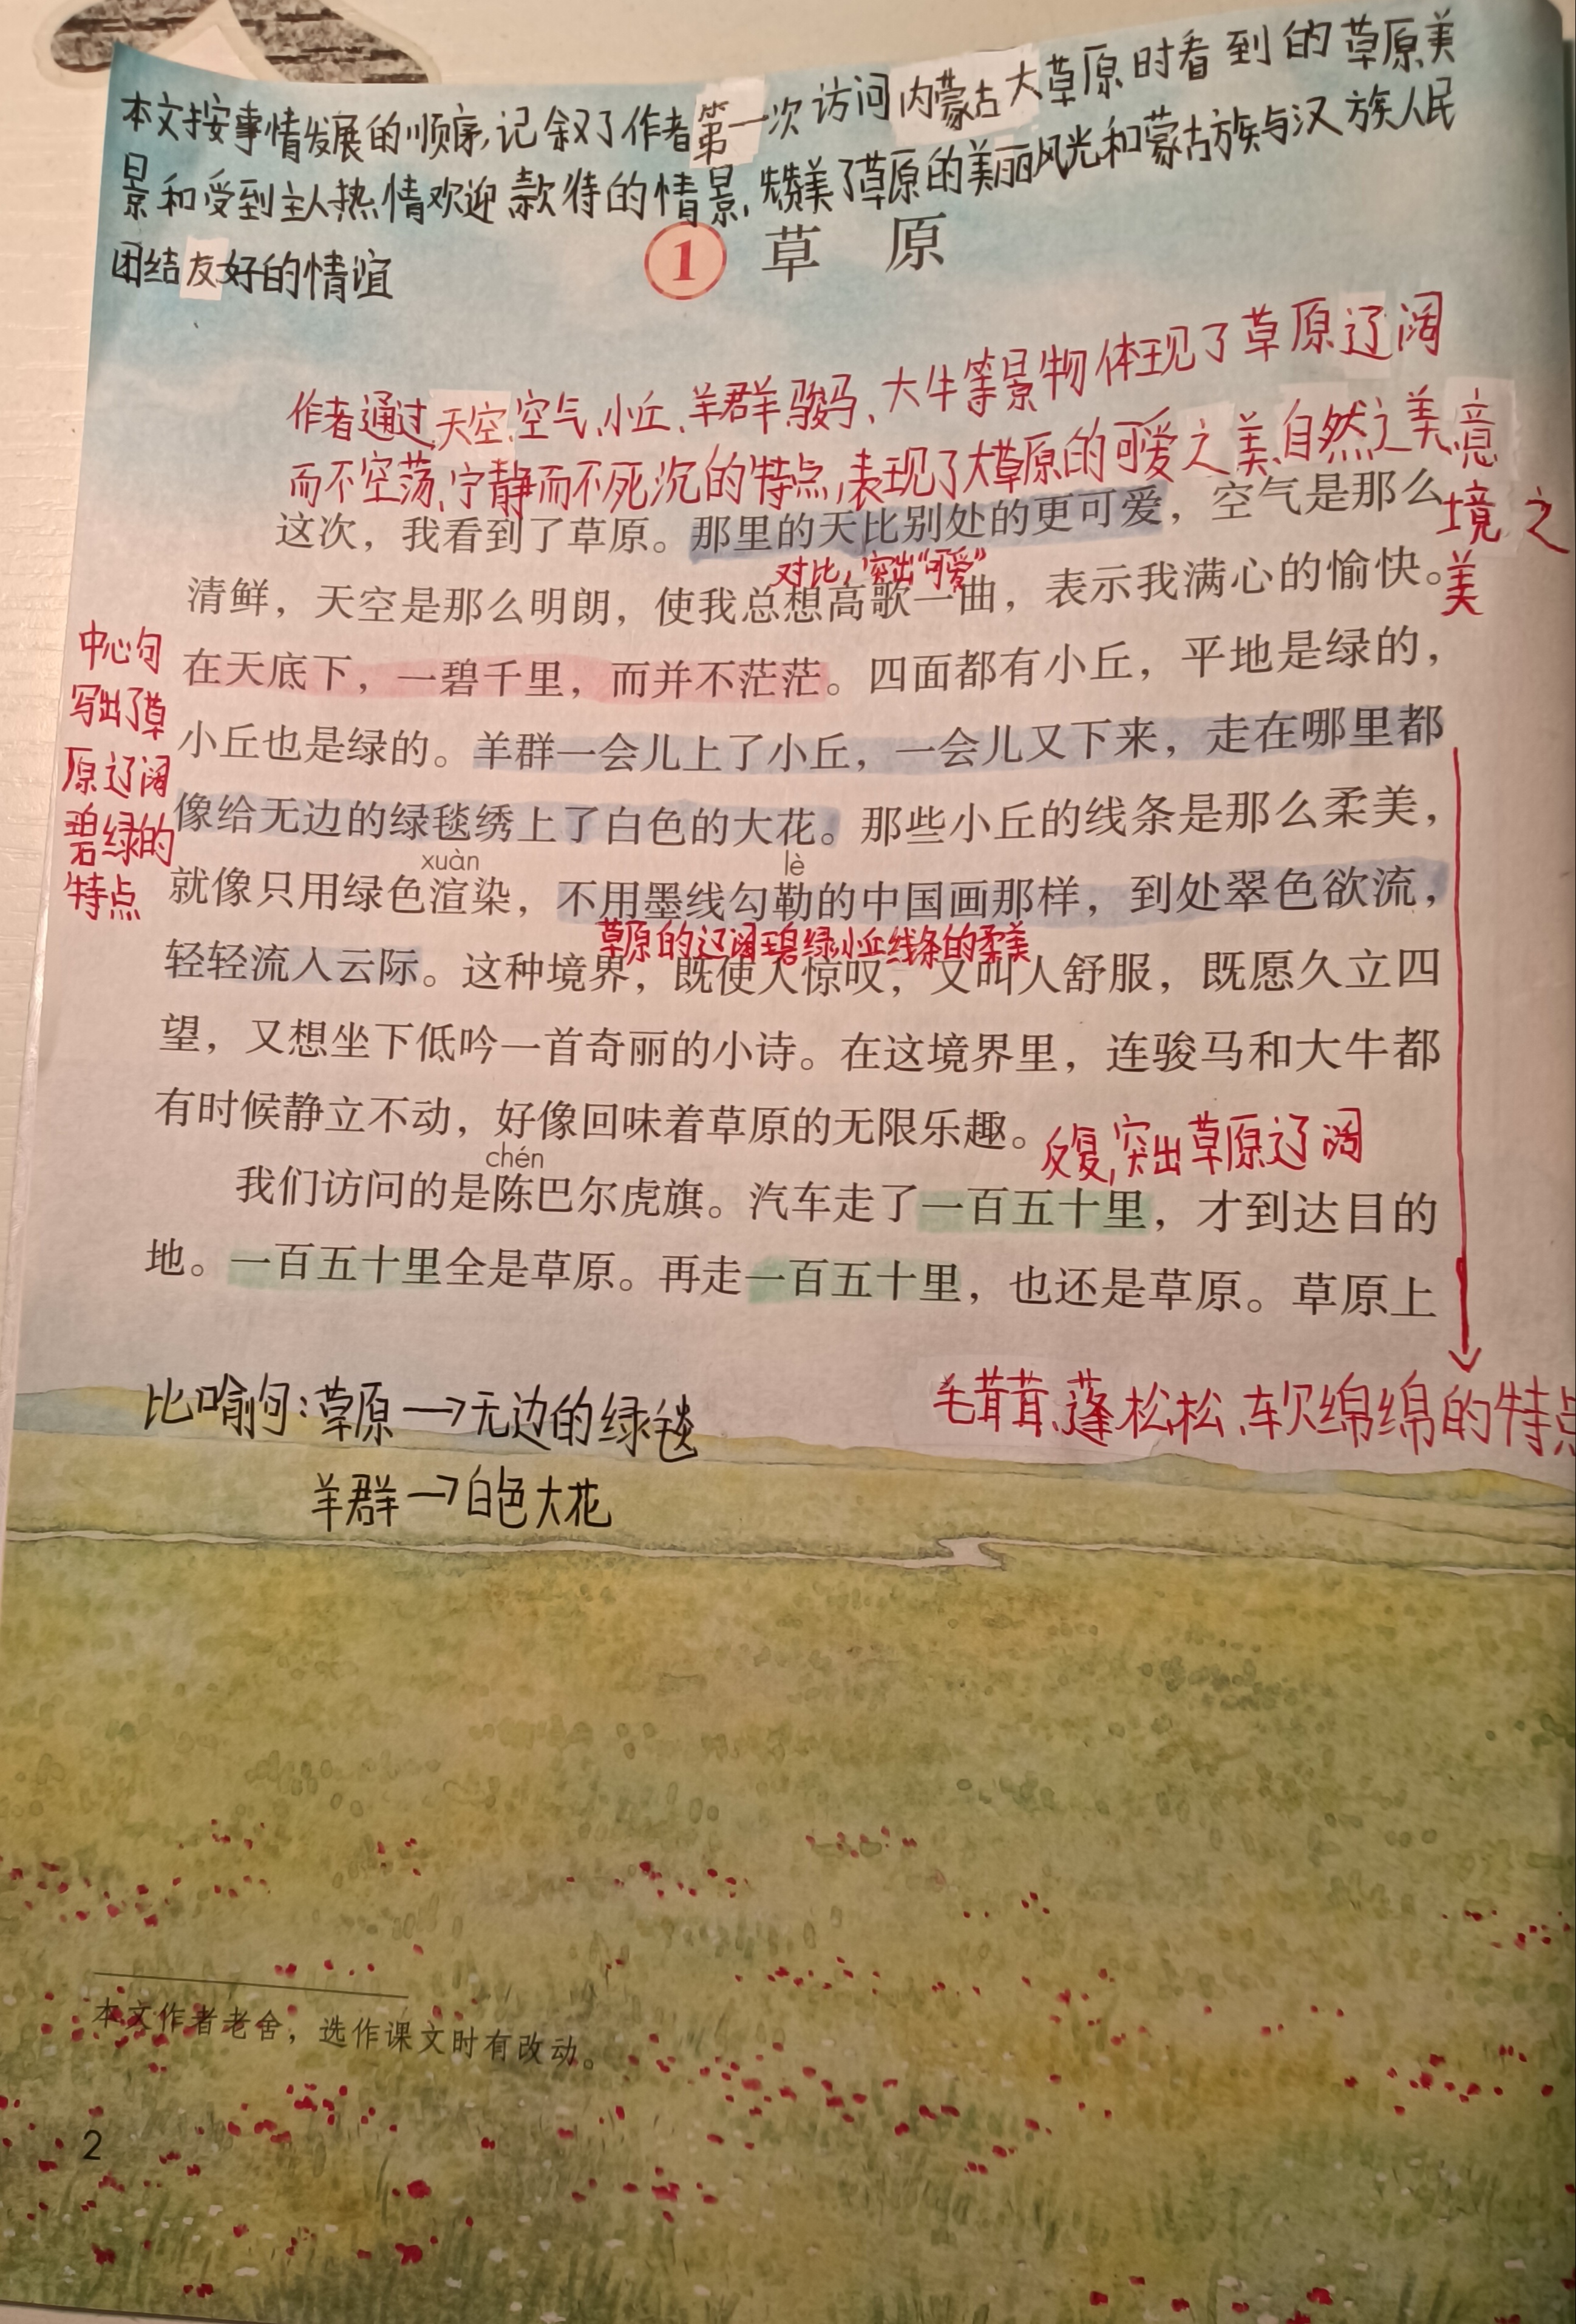 本文按事情发展的顺序,记叙了作者第一次访问内蒙古大草原时看到的草原美
景和受到主人热情欢迎款待的情景,赞美了草原的美丽风光和蒙古族与汉族人民
团结友好的情谊
1 草原
作者通过天空、空气、小丘、羊群、骏马、大牛等景物体现了草原辽阔
而不空荡、宁静而不死沉的特点,表现了大草原的可爱之美、自然之美、意
境之
美
这次，我看到了草原。那里的天比别处的更可爱，空气是那么
对比,突出“可爱”
清鲜，天空是那么明朗，使我总想高歌一曲，表示我满心的愉快。
在天底下，一碧千里，而并不茫茫。四面都有小丘，平地是绿的，
小丘也是绿的。羊群一会儿上了小丘，一会儿又下来，走在哪里都
像给无边的绿毯绣上了白色的大花。那些小丘的线条是那么柔美，
xuàn lè
就像只用绿色渲染，不用墨线勾勒的中国画那样，到处翠色欲流，
草原的辽阔碧绿,小丘线条的柔美
轻轻流入云际。这种境界，既使人惊叹，又叫人舒服，既愿久立四
望，又想坐下低吟一首奇丽的小诗。在这境界里，连骏马和大牛都
有时候静立不动，好像回味着草原的无限乐趣。
反复,突出草原辽阔
chén
我们访问的是陈巴尔虎旗。汽车走了一百五十里，才到达目的
地。一百五十里全是草原。再走一百五十里，也还是草原。草原上
中心句
写出了草
原辽阔
碧绿的
特点
比喻句:草原→无边的绿毯
羊群→白色大花
毛茸茸、蓬松松、软绵绵的特点
本文作者老舍，选作课文时有改动。
2